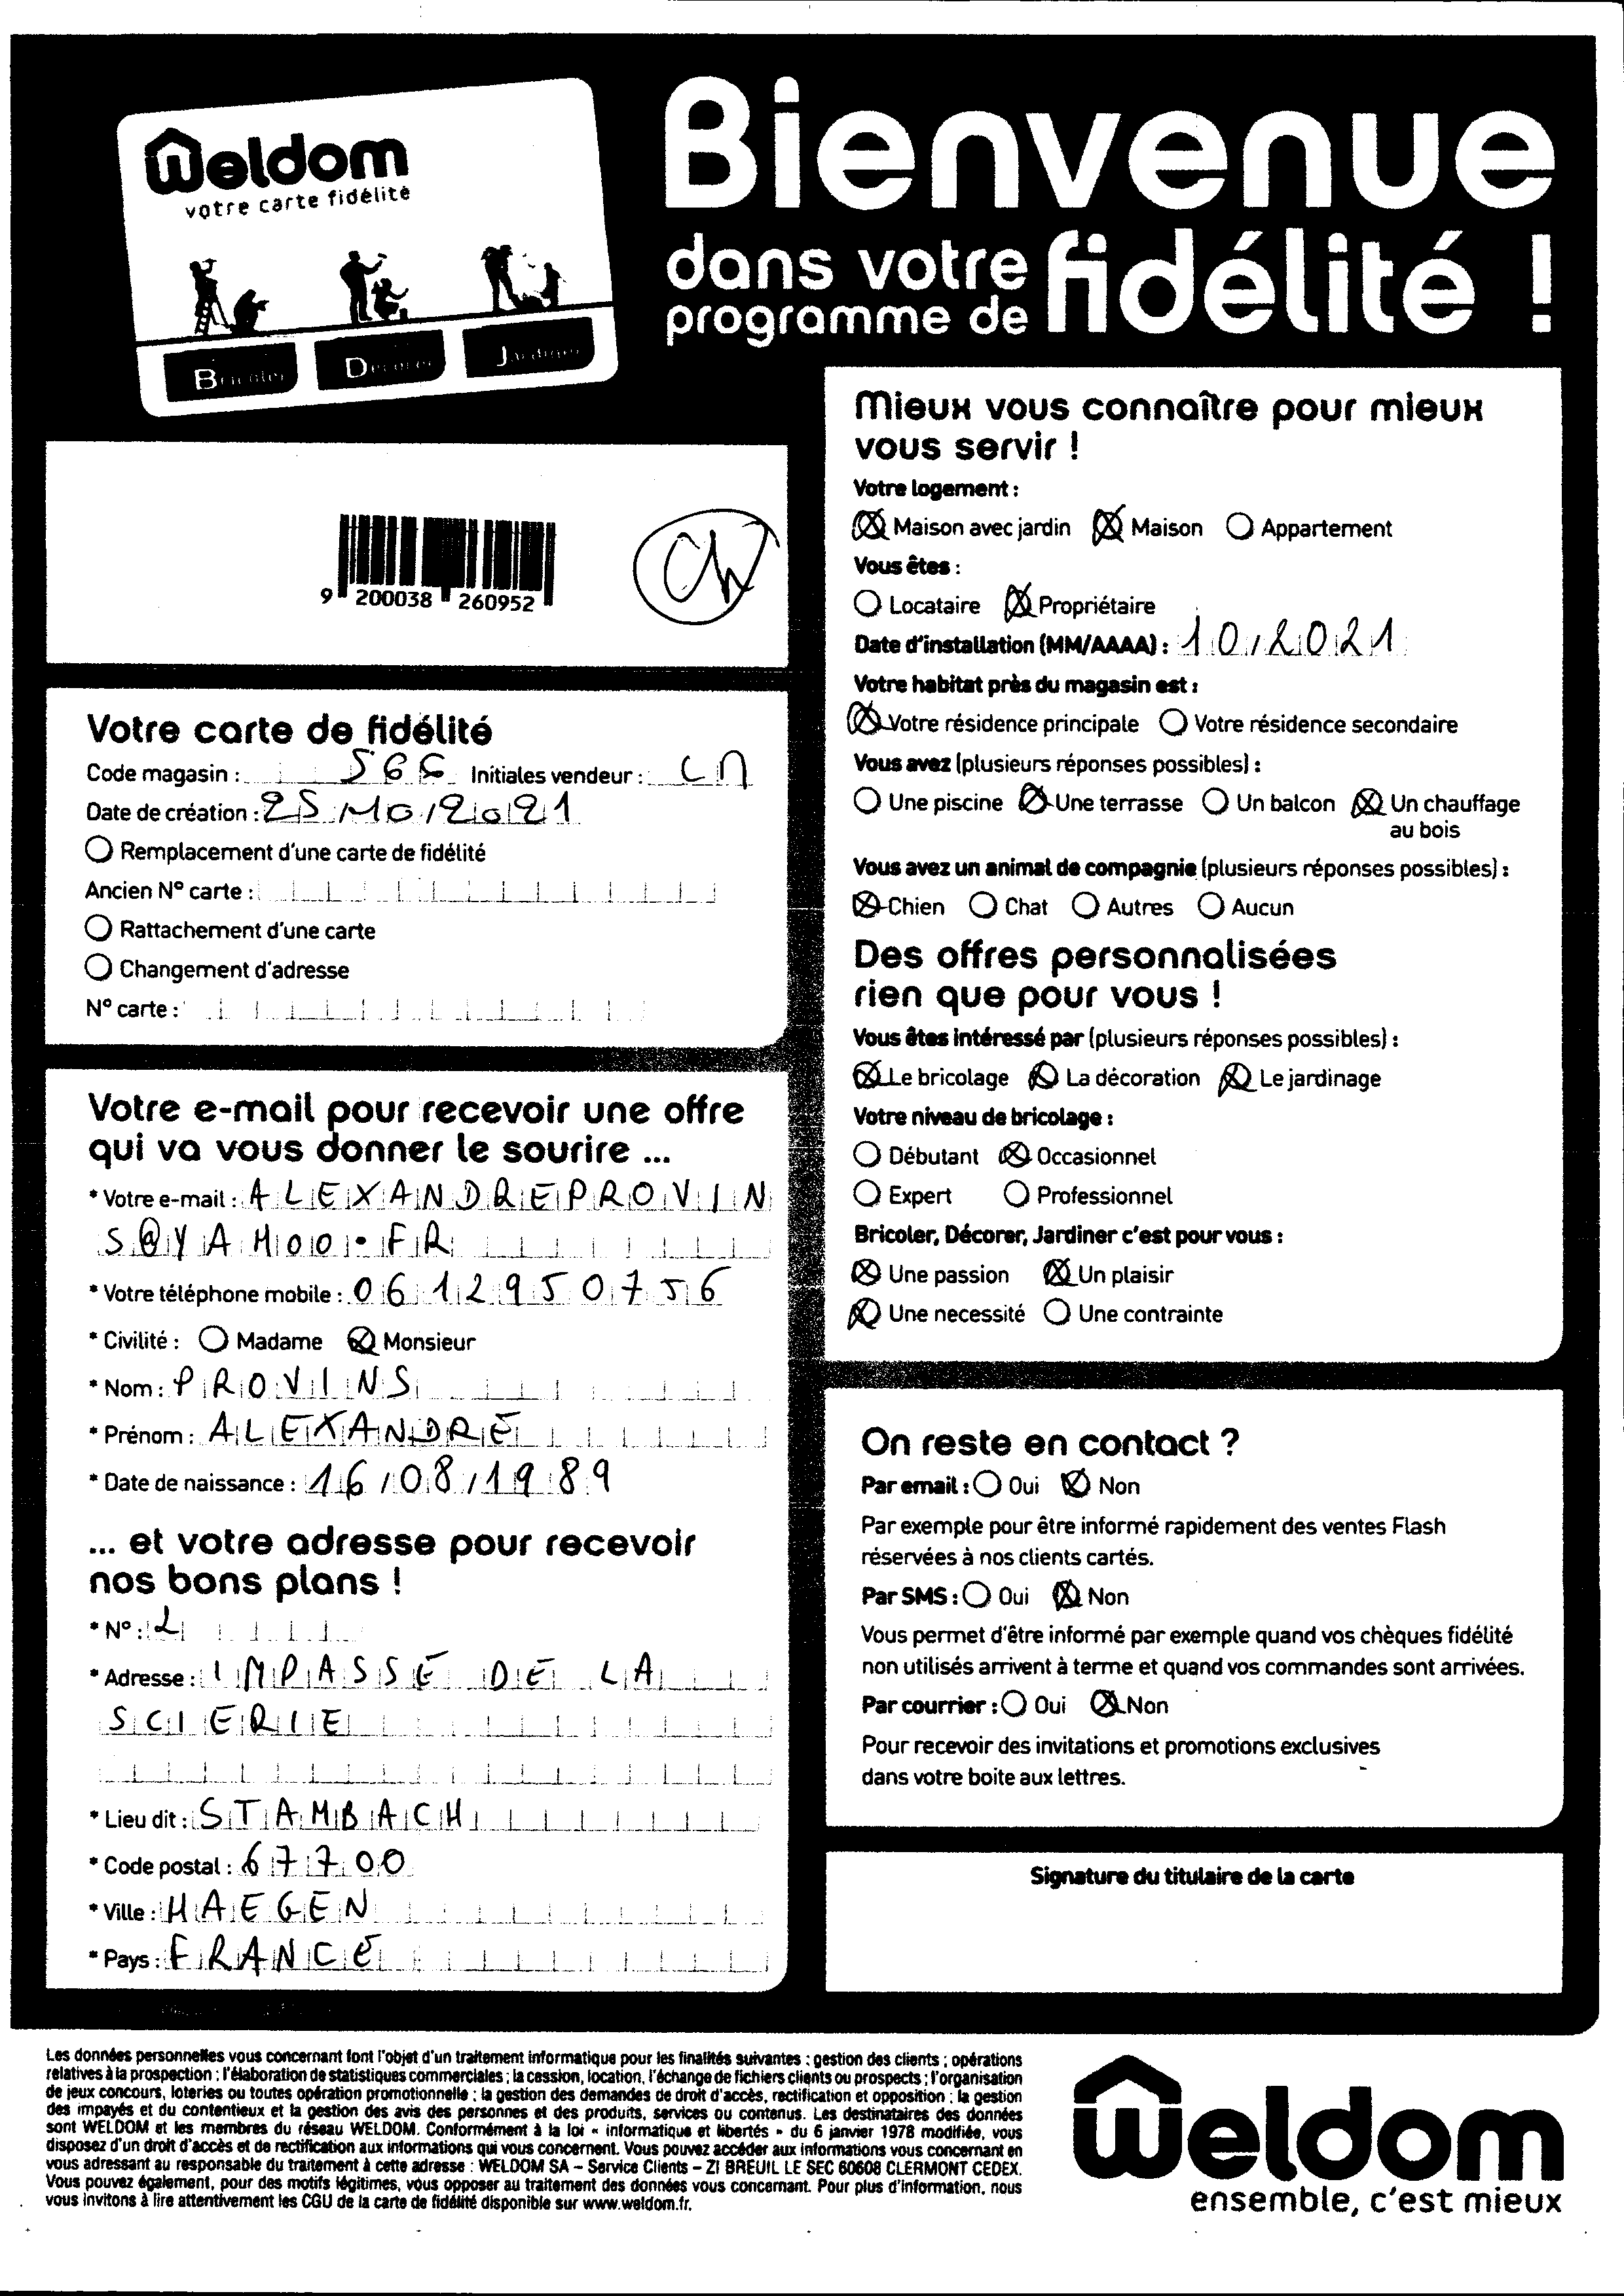 Weldom
votre carte fidélité
Bricoler Décorer Jardiner
Bienvenue
dans votre
programme de fidélité !
9 200038 260952
Votre carte de fidélité
Code magasin : 566 Initiales vendeur : CM
Date de création : 25/10/2021
Remplacement d'une carte de fidélité
Ancien N° carte :
Rattachement d'une carte
Changement d'adresse
N° carte :
Votre e-mail pour recevoir une offre
qui va vous donner le sourire ...
* Votre e-mail : ALEXANDREPROVIN
S@YAHOO.FR
* Votre téléphone mobile : 0612950756
* Civilité : Madame Monsieur
* Nom : PROVINS
* Prénom : ALEXANDRE
* Date de naissance : 16/08/1989
... et votre adresse pour recevoir
nos bons plans !
* N° : 2
* Adresse : IMPASSE DE LA
SCIERIE
* Lieu dit : STAMBACH
* Code postal : 67700
* Ville : HAEGEN
* Pays : FRANCE
Mieux vous connaître pour mieux
vous servir !
Votre logement :
Maison avec jardin Maison Appartement
Vous êtes :
Locataire Propriétaire
Date d'installation (MM/AAAA) : 10/2021
Votre habitat près du magasin est :
Votre résidence principale Votre résidence secondaire
Vous avez (plusieurs réponses possibles) :
Une piscine Une terrasse Un balcon Un chauffage
au bois
Vous avez un animal de compagnie (plusieurs réponses possibles) :
Chien Chat Autres Aucun
Des offres personnalisées
rien que pour vous !
Vous êtes intéressé par (plusieurs réponses possibles) :
Le bricolage La décoration Le jardinage
Votre niveau de bricolage :
Débutant Occasionnel
Expert Professionnel
Bricoler, Décorer, Jardiner c'est pour vous :
Une passion Un plaisir
Une necessité Une contrainte
On reste en contact ?
Par email : Oui Non
Par exemple pour être informé rapidement des ventes Flash
réservées à nos clients cartés.
Par SMS : Oui Non
Vous permet d'être informé par exemple quand vos chèques fidélité
non utilisés arrivent à terme et quand vos commandes sont arrivées.
Par courrier : Oui Non
Pour recevoir des invitations et promotions exclusives
dans votre boite aux lettres.
Signature du titulaire de la carte
Les données personnelles vous concernant font l'objet d'un traitement informatique pour les finalités suivantes : gestion des clients ; opérations
relatives à la prospection ; l'élaboration de statistiques commerciales ; la cession, location, l'échange de fichiers clients ou prospects ; l'organisation
de jeux concours, loteries ou toutes opération promotionnelle ; la gestion des demandes de droit d'accès, rectification et opposition ; la gestion
des impayés et du contentieux et la gestion des avis des personnes et des produits, services ou contenus. Les destinataires des données
sont WELDOM et les membres du réseau WELDOM. Conformément à la loi « informatique et libertés » du 6 janvier 1978 modifiée, vous
disposez d'un droit d'accès et de rectification aux informations qui vous concernent. Vous pouvez accéder aux informations vous concernant en
vous adressant au responsable du traitement à cette adresse : WELDOM SA – Service Clients – ZI BREUIL LE SEC 60608 CLERMONT CEDEX.
Vous pouvez également, pour des motifs légitimes, vous opposer au traitement des données vous concernant. Pour plus d'information, nous
vous invitons à lire attentivement les CGU de la carte de fidélité disponible sur www.weldom.fr.
Weldom
ensemble, c'est mieux